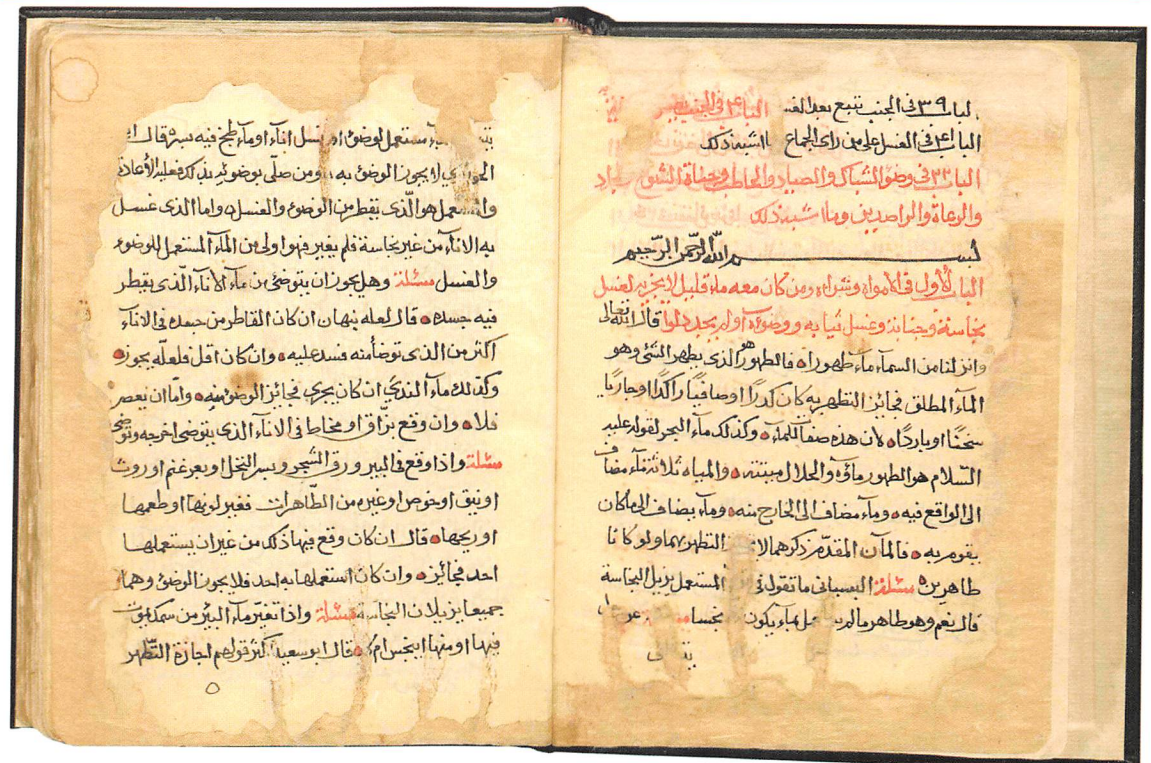 الباب ٣٩ في الجنب يتبع بعد الغسل الباب ٤٠ في الجنب
الباب ٤١ في الغسل على من رأى الجماع وما أشبه ذلك
الباب ٤٢ في وضوء الشباك والصياد والحاطب وحماة الشوع
والرعاة والراصدين وما اشبه ذلك
بسم الله الرحمن الرحيم
الباب الأول في الأمواه وشراءه ومن كان معه ماء قليل لا يجزيه لغسل
نجاسة وجنابة وغسل ثيابه ووضوءه أو لم يجد دلوا قال الله تعالى
وانزلنا من السمآء مآء طهورا فالطهور هو الذي يطهر الشئ وهو
المآء المطلق فجائز التطهر به كان كدرًا او صافيًا راكدًا او جاريًا
سخنًا او باردًا لان هذه صفات للمآء وكذلك مآء البحر لقوله عليه
السّلام هو الطهور مآؤه والحلال ميتته والمياه ثلاثة مآء مضاف
الى الواقع فيه ومآء مضاف الى الخارج منه ومآء يضاف الى ما كان
يقوم به فالمآن المقدّم ذكرهما لا التطهر بهما ولو كانا
طاهرين مسئلة البسياني ما تقول في المستعمل يزيل النجاسة
قال نعم وهو طاهر ما لم بماء يكون نجسا
مستعمل لوضوء او غسل انآء او مآء طبخ فيه بسر قال
لا يجوز الوضوء به ومن صلّى بوضوئه بذلك فعليه الأعادة
والمستعمل هو الّذي يقطر من الوضوء والغسل واما الذي غسل
به الانآء من غير نجاسة فلم يغير فهو اولى من المآء المستعمل للوضوء
والغسل مسئلة وهل يجوز ان يتوضئ من مآء الأناء الّذي يقطر
فيه جسده قال لعله نبهان ان كان القاطر من جسده في الانآء
اكثر من الذي توضأ منه فسد عليه وان كان اقل فلعلّه يجوز
وكذلك مآء الندي ان كان يجري فجائز الوضوء منه وامّا ان يعصر
فلا وان وقع بزّاق او مخاط في الانآء الذي يتوضى اخرجه وتوضى
مسئلة واذا وقع في البير ورق الشجر وبسر النخل او بعر غنم او روث
او نبق او خوص او غيره من الطّاهرات فغير لونها او طعمها
او ريحها قال ان كان وقع فيها ذلك من غير ان يستعملها
احد فجائز وان كان استعملها به احد فلا يجوز الوضوء وهما
جميعا يزيلان النجاسة مسئلة واذا تغير مآء البئر من سمك يموت
فيها او منها اينجس ام لا قال ابو سعيد اكثر قولهم اجازة التّطهر